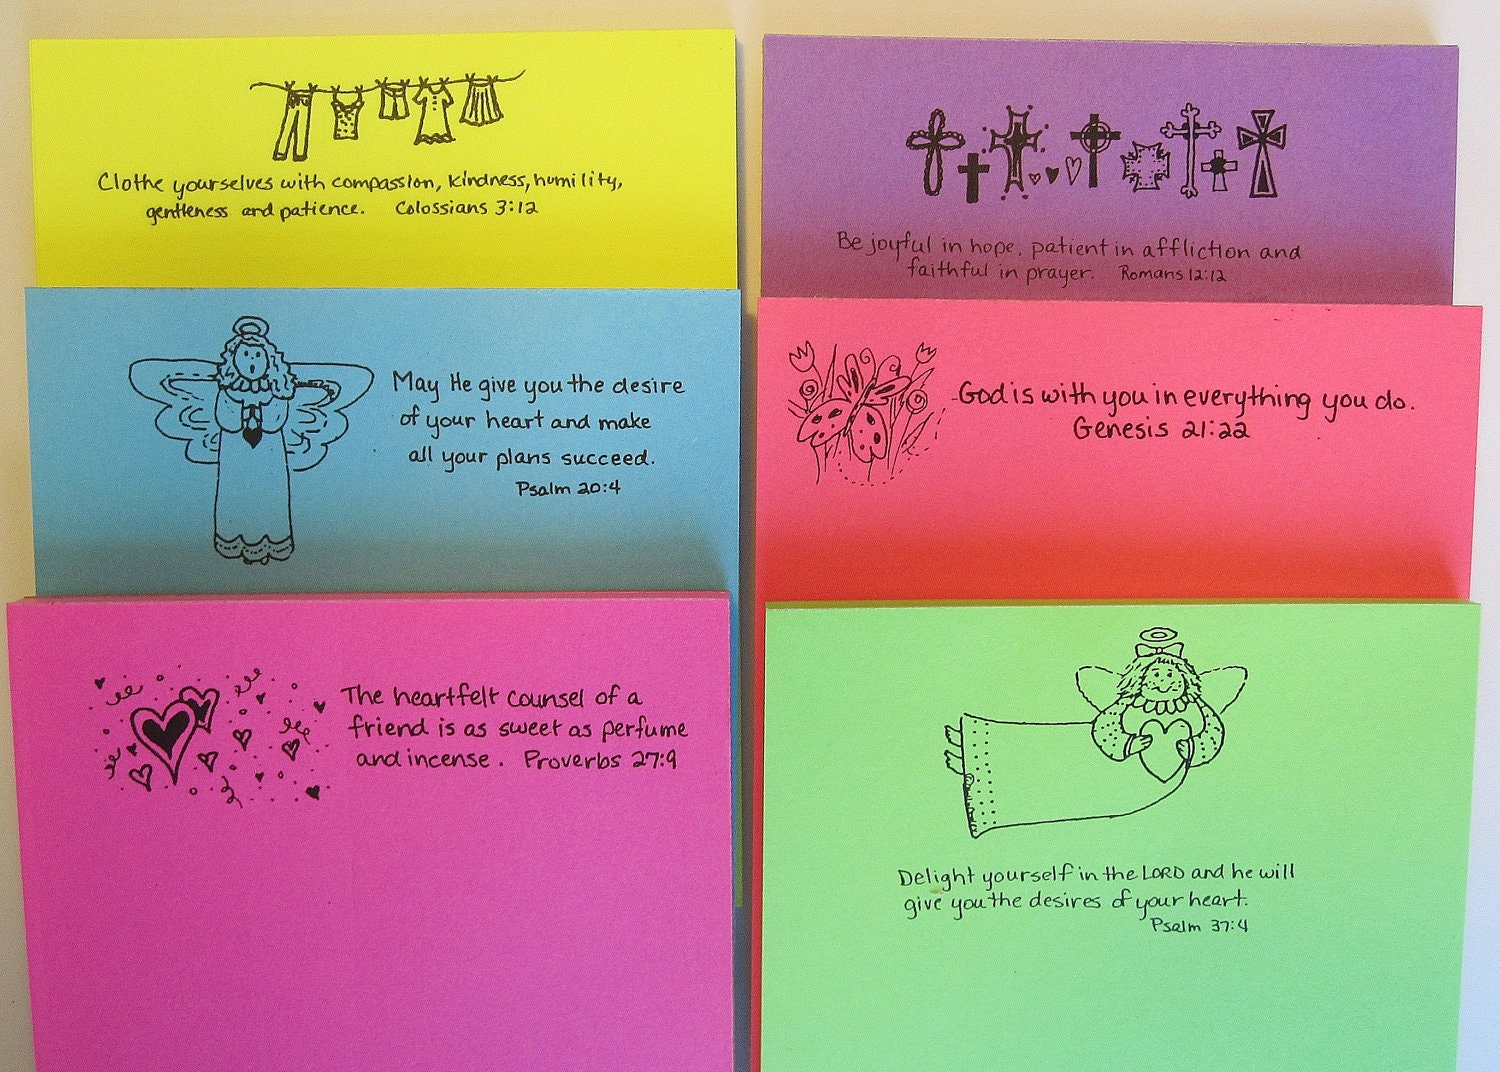 Clothe yourselves with compassion, kindness, humility,
gentleness and patience. Colossians 3:12
Be joyful in hope, patient in affliction and
faithful in prayer. Romans 12:12
May He give you the desire
of your heart and make
all your plans succeed.
Psalm 20:4
God is with you in everything you do.
Genesis 21:22
The heartfelt counsel of a
friend is as sweet as perfume
and incense. Proverbs 27:9
Delight yourself in the LORD and he will
give you the desires of your heart.
Psalm 37:4